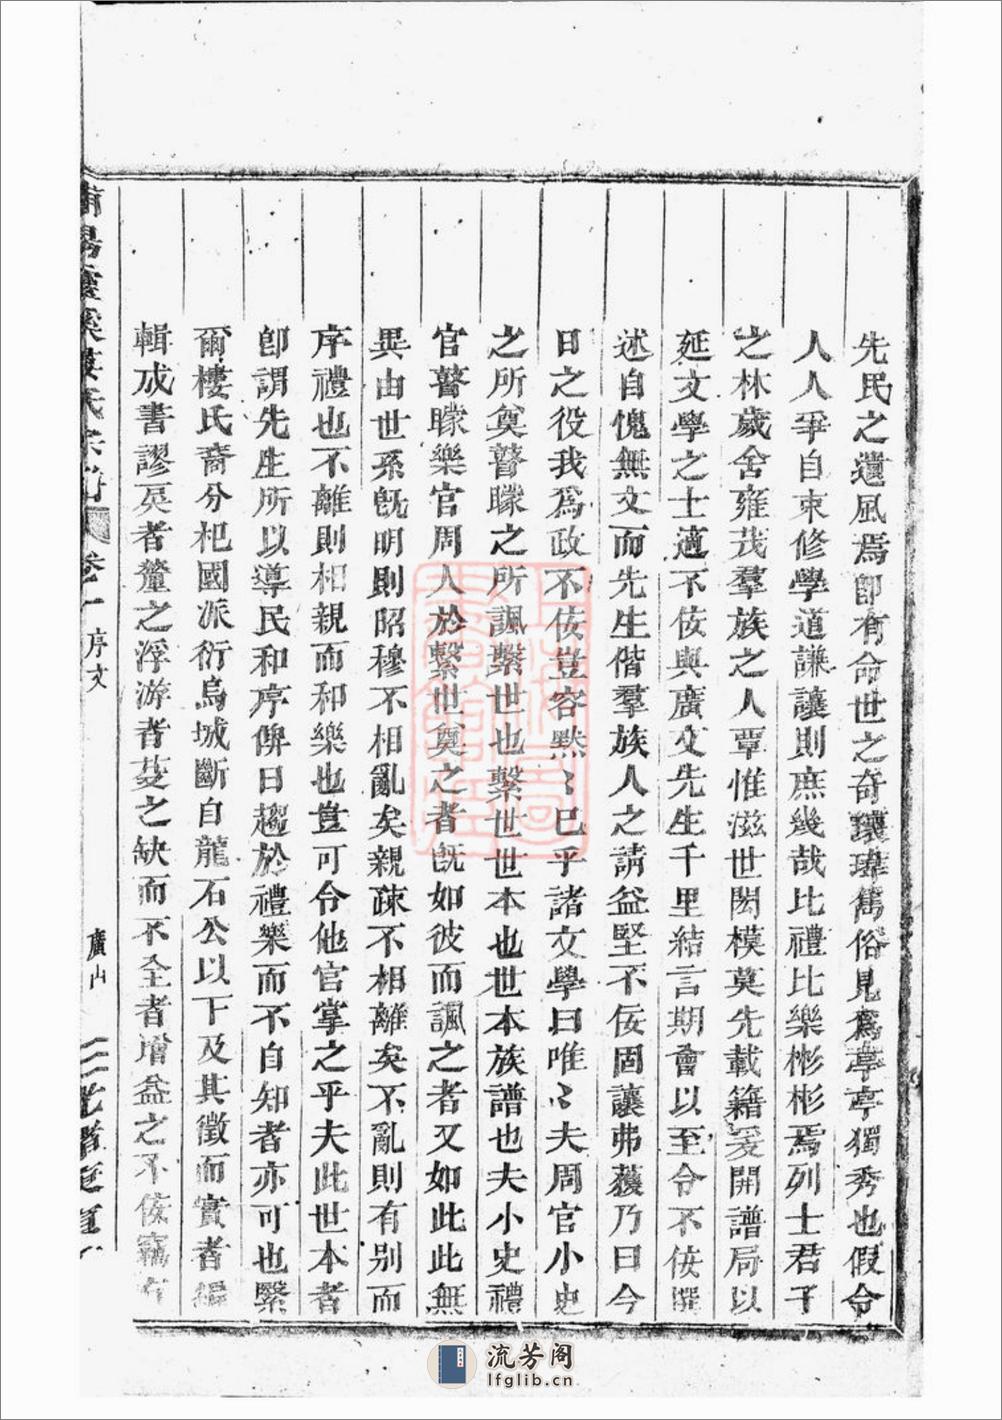 先民之遺風焉即有命世之奇瓌瑋雋俗見爲亭亭獨秀也假令
人人爭自束修學道謙讓則庶幾哉比禮比樂彬彬焉列士君子
之林歲舍雍茂羣族之人覃惟滋世閎模莫先載籍爰開譜局以
延文學之士適不佞與廣文先生千里結言期會以至令不佞譔
述自愧無文而先生偕羣族人之請益堅不佞固讓弗獲乃曰今
日之役我爲政不佞豈容默〻已乎諸文學曰唯〻夫周官小史
之所奠瞽矇之所諷繫世也繫世世本也世本族譜也夫小史禮
官瞽矇樂官周人於繫世奠之者旣如彼而諷之者又如此此無
異由世系旣明則昭穆不相亂矣親疎不相離矣不亂則有别而
序禮也不離則相親而和樂也豈可令他官掌之乎夫此世本者
卽謂先生所以導民和序俾日趨於禮樂而不自知者亦可也緊
爾樓氏裔分杞國派衍烏城斷自龍石公以下及其徵而實者編
輯成書謬戾者釐之浮游者芟之缺而不全者增益之不佞竊有
宗譜 卷一 序文 廣山